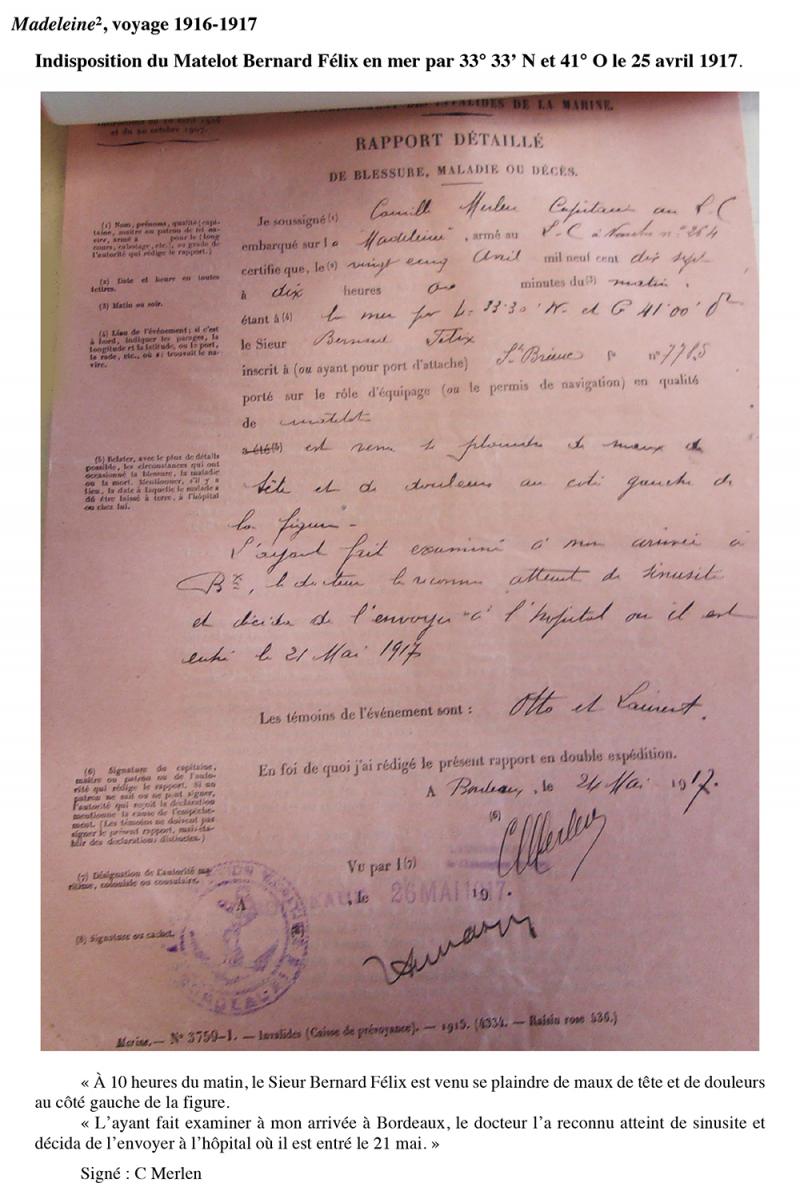 Madeleine², voyage 1916-1917
Indisposition du Matelot Bernard Félix en mer par 33° 33’ N et 41° O le 25 avril 1917.
INVALIDES DE LA MARINE.
et du 20 octobre 1907.
RAPPORT DÉTAILLÉ
DE BLESSURE, MALADIE OU DÉCÈS.
(1) Nom, prénoms, qualité (capitaine, maître ou patron de tel navire, armé à pour le (long cours, cabotage, etc.), ou grade de l'autorité qui rédige le rapport.)
(2) Date et heure en toutes lettres.
(3) Matin ou soir.
(4) Lieu de l'événement; si c'est à bord, indiquer les parages, la longitude et la latitude, ou le port, la rade, etc., où se trouvait le navire.
Je soussigné (1) Camille Merlen Capitaine au L-C
embarqué sur la "Madeleine", armé au L-C à Nantes n° 264
certifie que, le (2) vingt cinq Avril mil neuf cent dix sept
à dix heures 00 minutes du (3) matin.
étant à (4) la mer par L= 33·30' N. et G 41°00' O
le Sieur Bernard Félix
inscrit à (ou ayant pour port d'attache) St Brieuc n° 7785
porté sur le rôle d'équipage (ou le permis de navigation) en qualité
de matelot
(5) Relater, avec le plus de détails possible, les circonstances qui ont occasionné la blessure, la maladie ou la mort. Mentionner, s'il y a lieu, la date à laquelle le malade a dû être laissé à terre, à l'hôpital ou chez lui.
a été (5) est venu se plaindre de maux de
tête et de douleurs au coté gauche de
la figure -
L'ayant fait examiné à mon arrivée à
Bx, le docteur l'a reconnu atteint de sinusite
et décida de l'envoyer à l'hôpital ou il est
entré le 21 Mai 1917
Les témoins de l'événement sont : Otto et Laurent.
En foi de quoi j'ai rédigé le présent rapport en double expédition.
A Bordeaux, le 24 Mai 1917.
(6) Signature du capitaine, maître ou patron ou de l'autorité qui rédige le rapport. Si un patron ne sait ou ne peut signer, l'autorité qui reçoit la déclaration mentionne la cause de l'empêchement. (Les témoins ne doivent pas signer le présent rapport, mais établir des déclarations distinctes.)
(6)
CMerlen
(7) Désignation de l'autorité maritime, coloniale ou consulaire.
Vu par l (7)
A , le 26 MAI 1917 19 .
(8) Signature ou cachet.
(8)
BORDEAUX
Marine. — N° 3759-1. — Invalides (Caisse de prévoyance). — 1915. (4334. — Raisin rose 536.)
« À 10 heures du matin, le Sieur Bernard Félix est venu se plaindre de maux de tête et de douleurs
au côté gauche de la figure.
« L’ayant fait examiner à mon arrivée à Bordeaux, le docteur l’a reconnu atteint de sinusite et
décida de l’envoyer à l’hôpital où il est entré le 21 mai. »
Signé : C Merlen